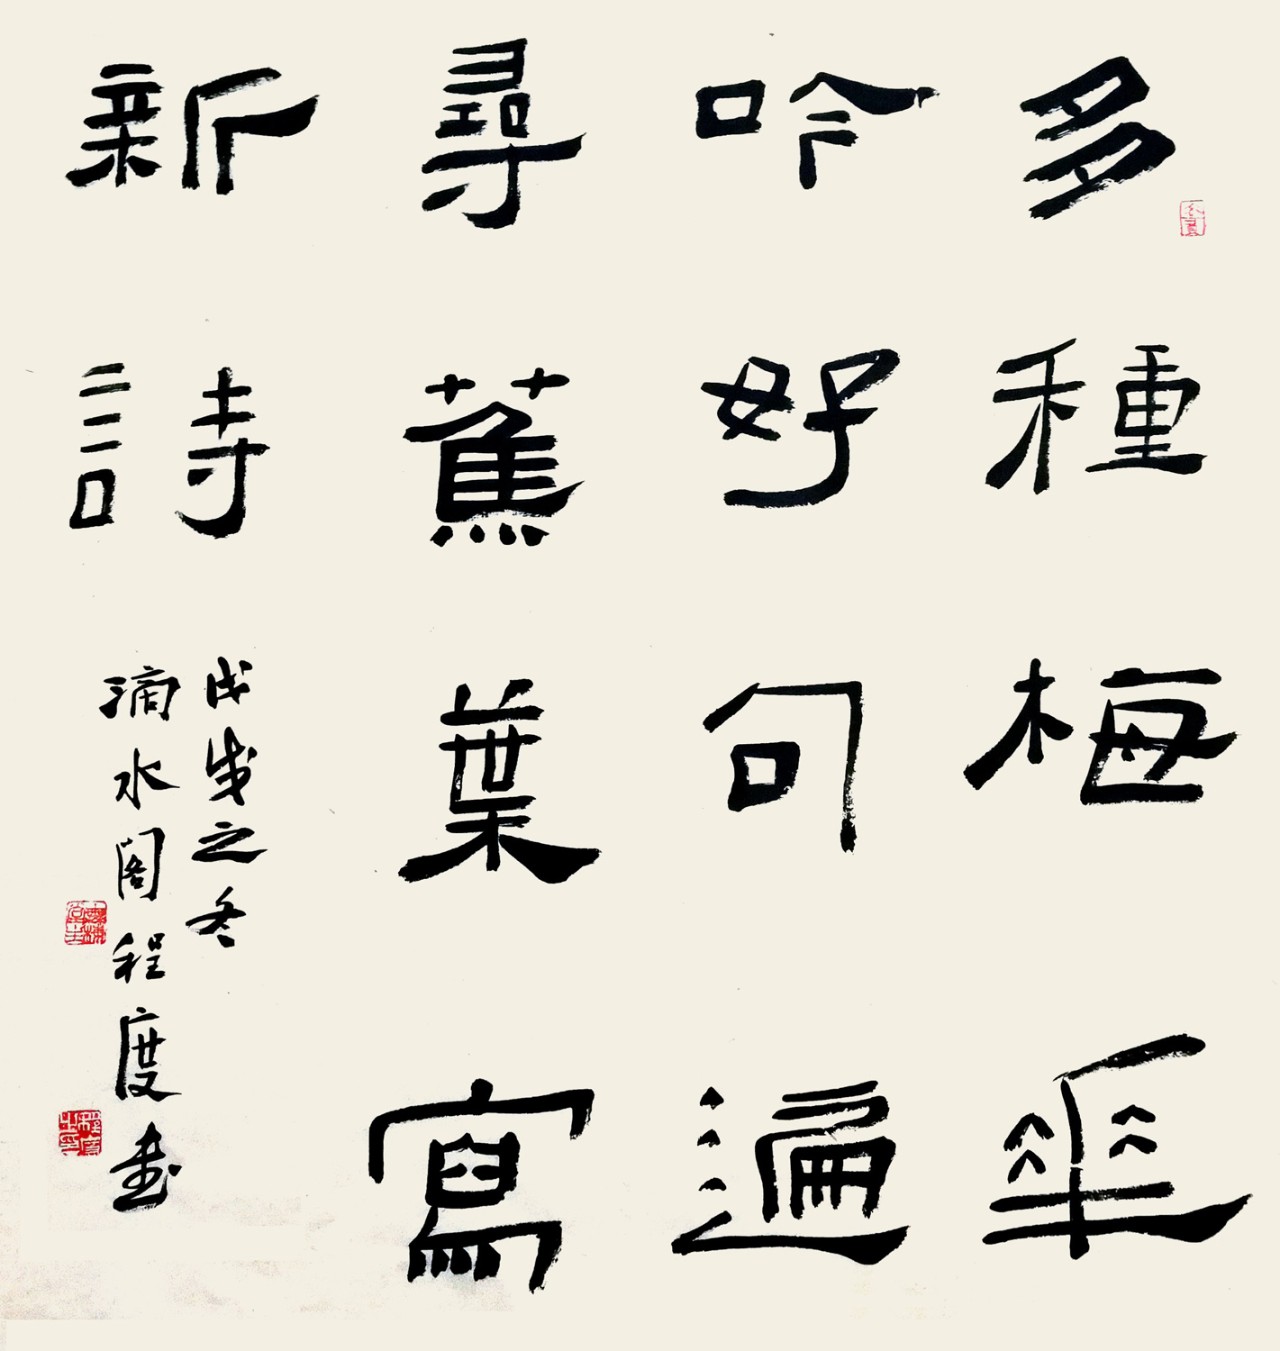 多種梅華
吟好句遍
尋蕉葉寫
新詩
戊戌之冬
滴水閣程度書